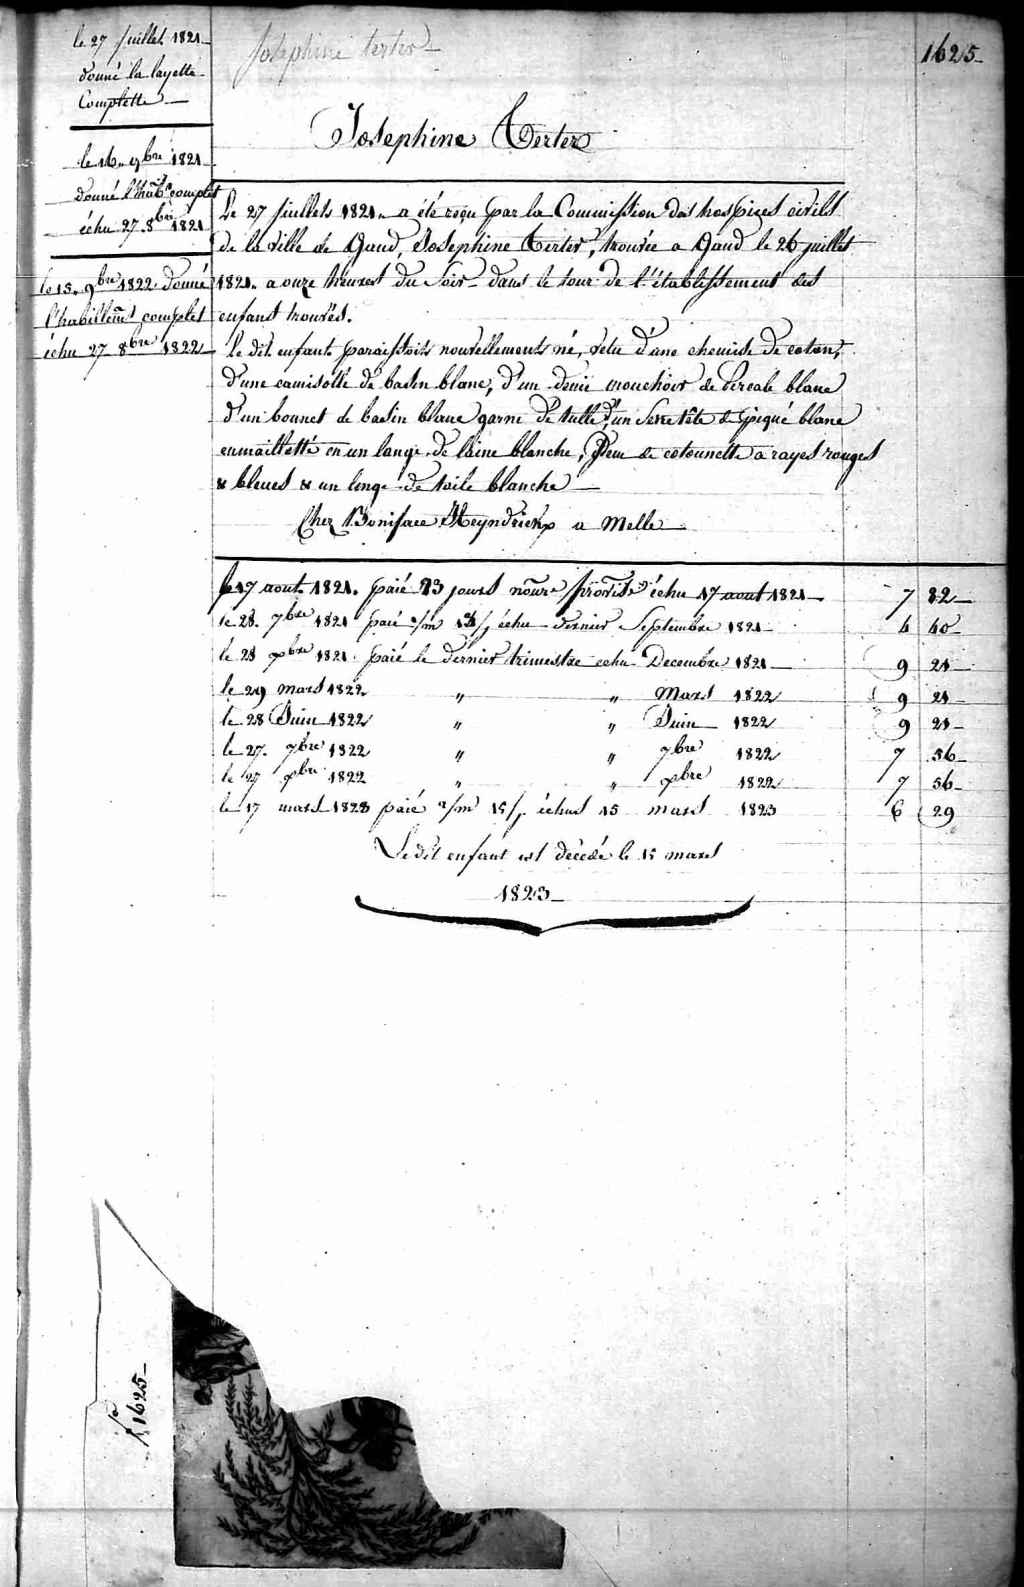 le 27 Juillet 1821
donné la layette
Complette —
le 16 9bre 1821
donné l'habt complet
échu 27 8bre 1821
le 15. 9bre 1822. donné
l'habillemt complet
échu 27 8bre 1822
Josephine terter
1625
Josephine Terter
Le 27 Juillets 1821. a été reçu par la Commission des hospices civils
de la ville de Gand, Josephine Terter, trouvée a Gand le 26 juillet
1821. a onze heures du Soir dans le tour de l'établissement des
enfans trouvés.
le dit enfant paraissoits nouvellements né, vetu d'une chemise de coton,
d'une camisolle de basin blanc, d'un demi mouchoir de Percale blanc
d'un bonnet de basin blanc garni de tulle d'un Serre tête de piqué blanc
enmailletté en un lange de laine blanche, d'eun de cotonnette a rayes rouges
& bleues & un linge de toile blanche —
Chez Boniface Heyndrickx a Melle —
le 17 aout 1821. paié 23 jours échu 17 aout 1821 — 7 82
le 28. 7bre 1821 paié échu dernier Septembre 1821 4 40
le 28 xbre 1821 paié le dernier trimestre echu Decembre 1821 — 9 21
le 29 mars 1822 " " Mars 1822 9 21
le 28 Juin 1822 " " Juin 1822 9 21
le 27. 7bre 1822 " " 7bre 1822 7 56
le 27 xbre 1822 " " xbre 1822 7 56
le 17 mars 1823 paié a/m 15/j. échus 15 mars 1823 6 29
Le dit enfant est décédé le 15 mars
1823
1625